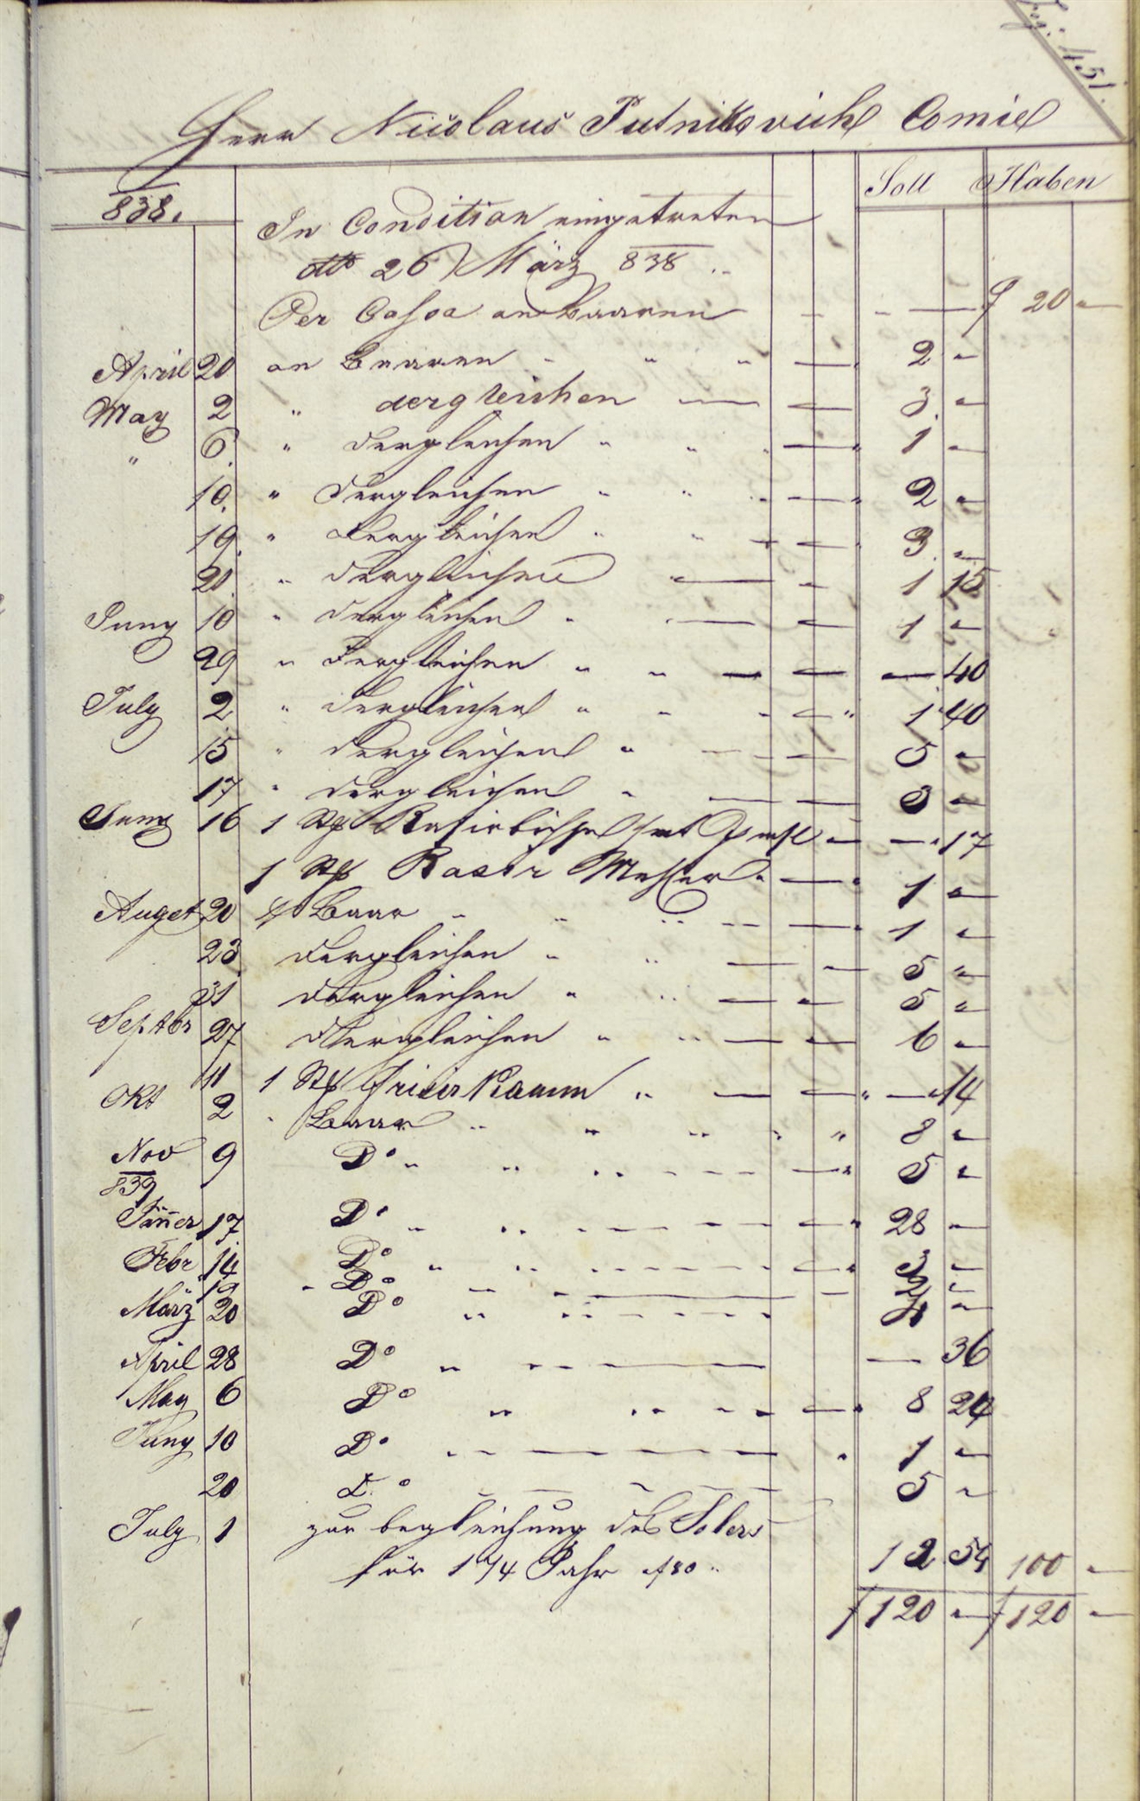 Pag: 451.
Herr Nicolaus Putnikovich Comis
Soll Haben
838. In Condition eingetreten
dtto 26 März 838
Per Cassa an Baaren — — f 20 "
April 20 an Baaren " " " — 2 "
May 2 " dergleichen — — 3. "
" 6. " dergleichen " " " — 1 "
10. " dergleichen " " " — 2 "
19. " dergleichen " " — 3 "
20. " dergleichen — — 1 15
Juny 10 " dergleichen " — — 1 "
29 " dergleichen " " — — — 40
July 2 " dergleichen " " " — 1 40
15 " dergleichen " — — 5 "
17 " dergleichen " — — 3 "
Juny 16 1 Stk Rasirbichsel samt Pensl — — 17
1 Stk Rasir Messer " — 1 "
Augst 20 Baar " " " — 1 "
23 dergleichen " " — — 5 "
31 dergleichen " " — — 5 "
Septbr 27 dergleichen " " — — 6 "
11 1 Stk Frisir Kamm " — — " — 14
Okt 2 " Baar " " " " " 8 "
Nov 9 Do " " " — — 5 "
839
Jänner 17 Do " " — — 28 —
Febr 14 Do " " — — 3 "
19 " Do — — — 2 "
März 20 Do " " — 4 "
April 28 Do " — — — 36
May 6 Do " " — — 8 24
Juny 10 Do " — — " 1 "
20 Do — — 5 "
July 1 zur begleichung des Solers
für 1 1/4 Jahr f 80 " 12 54 100 "
f 120 " f 120 "